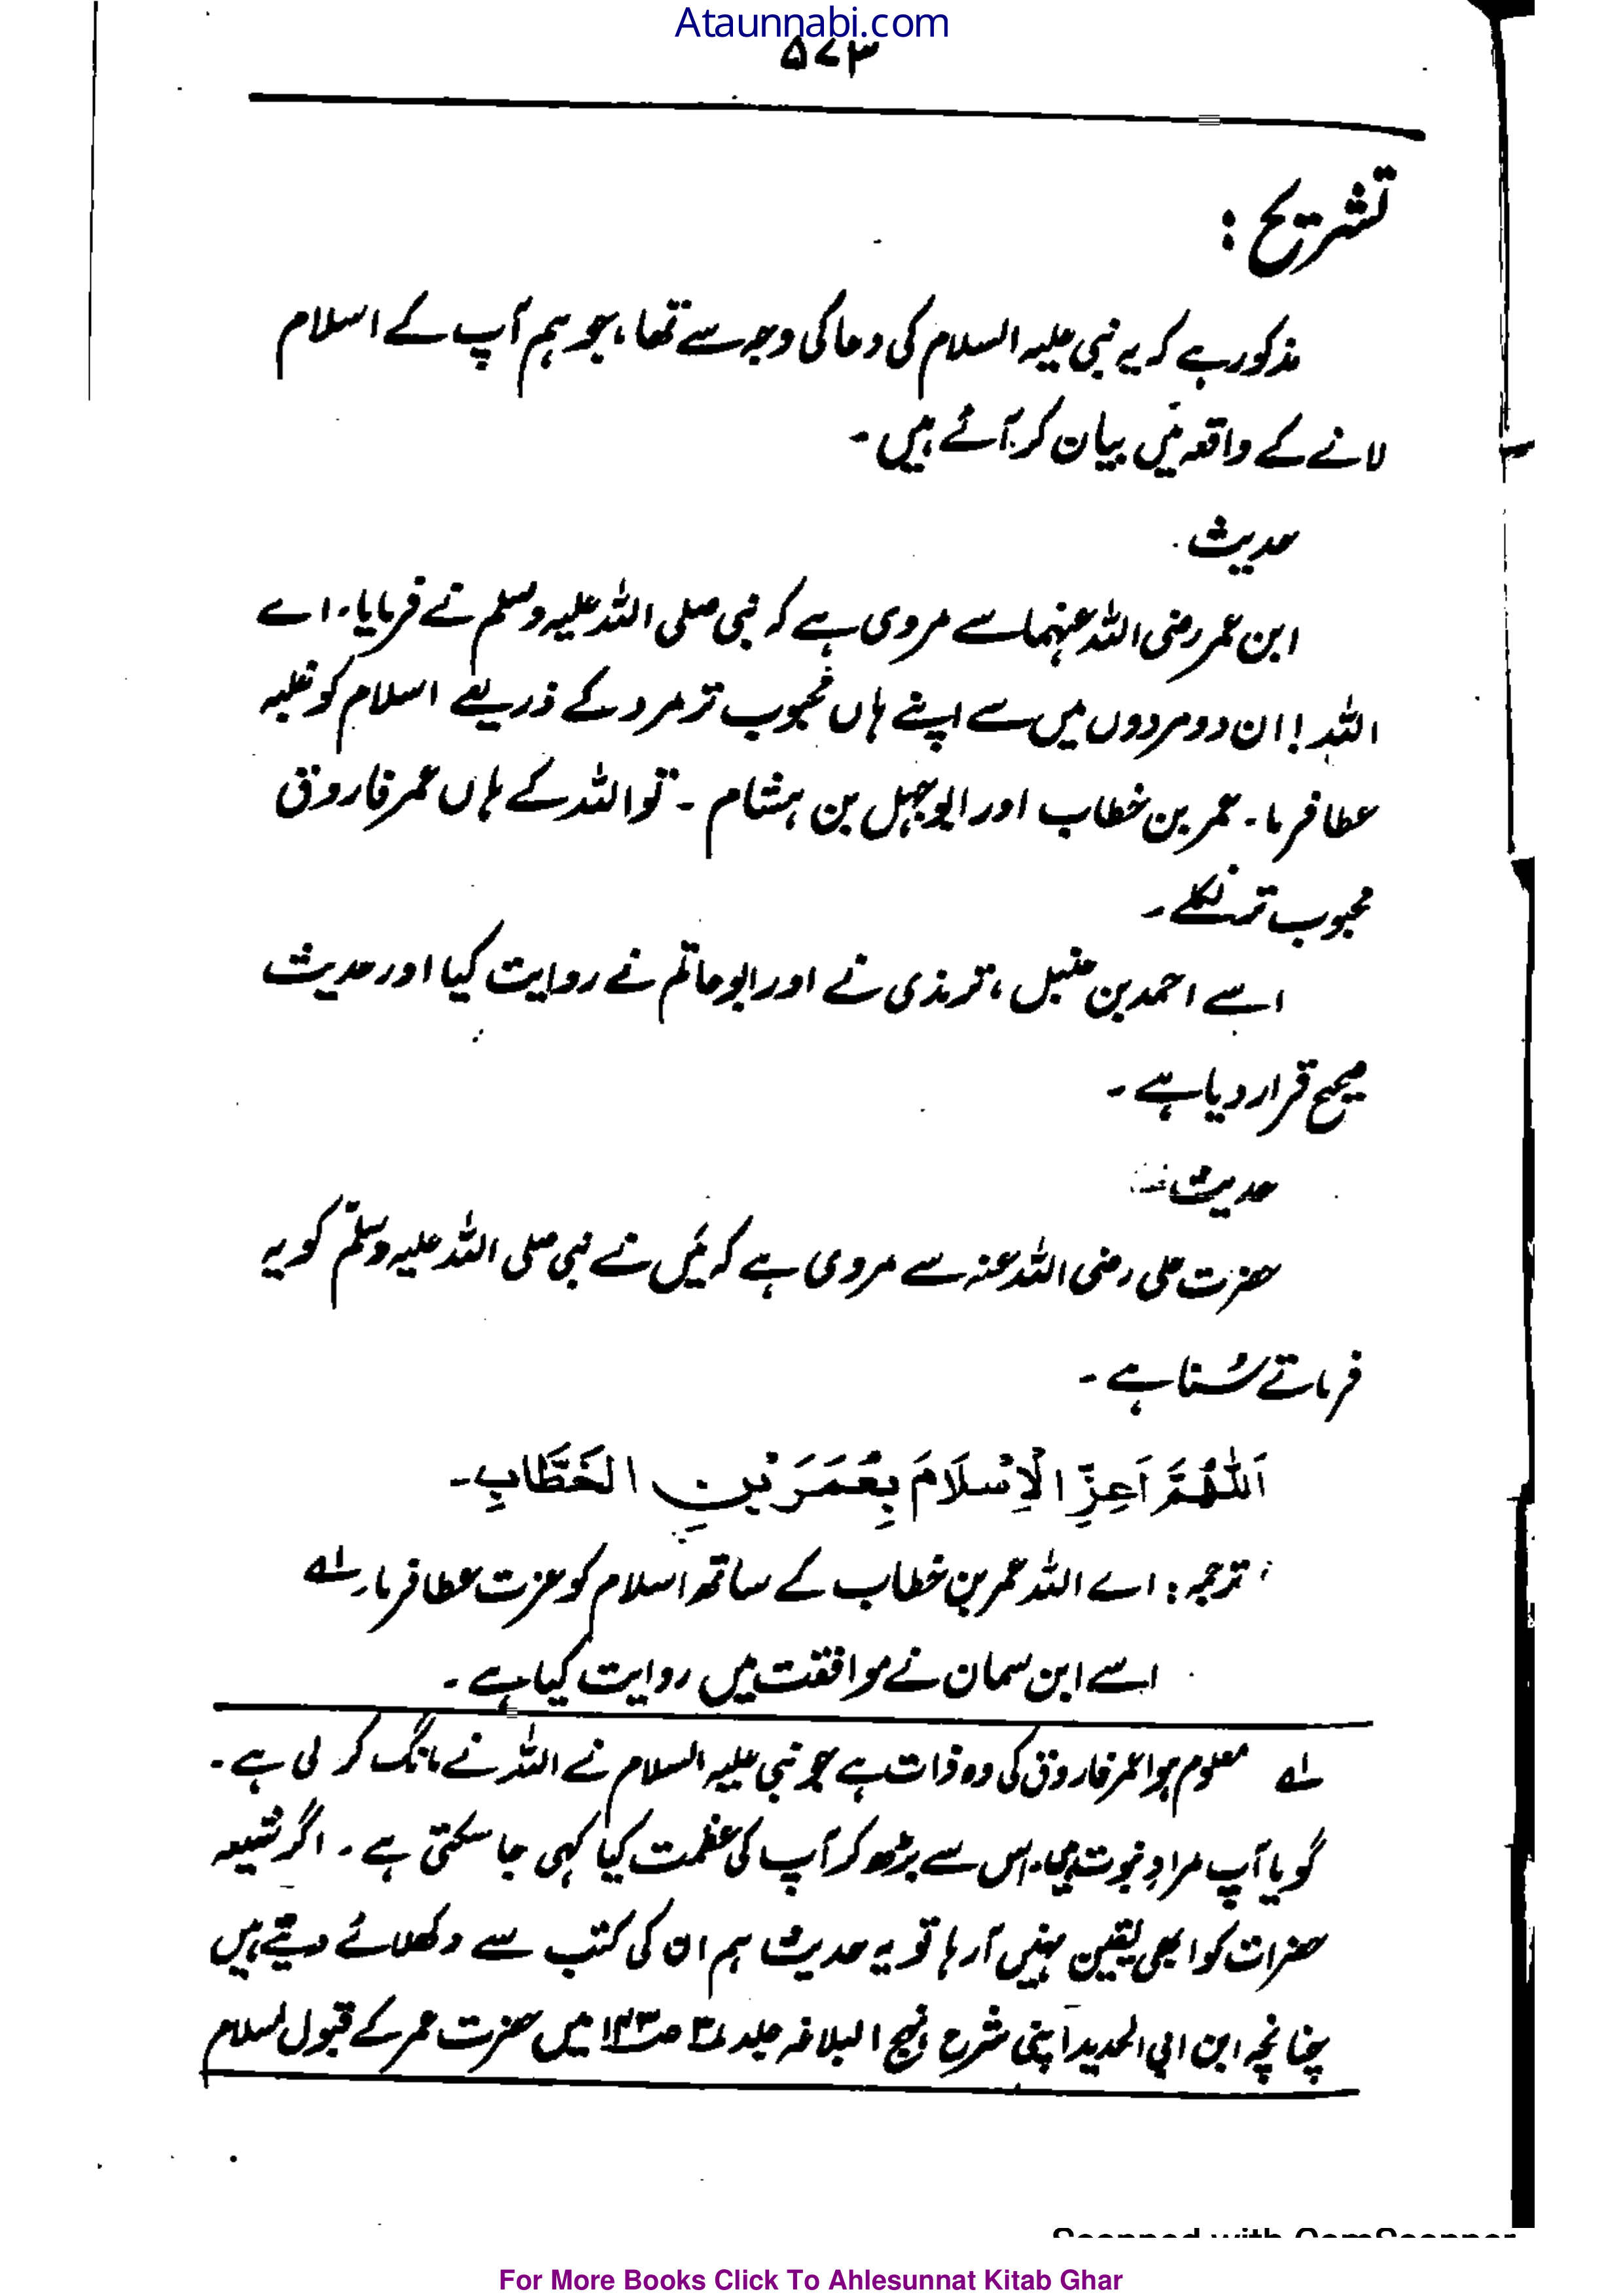 Ataunnabi.com
۵۷۳
تشریح :
مذکور ہے کہ یہ نبی علیہ السلام کی دعا کی وجہ سے تھا، جو ہم آپ کے اسلام
لانے کے واقعہ میں بیان کر آئے ہیں ۔
حدیث
ابن عمر رضی اللہ عنہما سے مروی ہے کہ نبی صلی اللہ علیہ وسلم نے فرمایا۔ اے
اللہ! ان دو مردوں میں سے اپنے ہاں محبوب تر مرد کے ذریعے اسلام کو غلبہ
عطا فرما۔ عمر بن خطاب اور ابوجہل بن ہشام ۔ تو اللہ کے ہاں عمر فاروق
محبوب تر نکلے ۔
اسے احمد بن حنبل ، ترمذی نے اور ابو حاتم نے روایت کیا اور حدیث
صحیح قرار دیا ہے ۔
حدیث
حضرت علی رضی اللہ عنہ سے مروی ہے کہ میں نے نبی صلی اللہ علیہ وسلم کو یہ
فرماتے سُنا ہے ۔
اَللّٰهُمَّ اَعِزِّ الْاِسْلَامَ بِعُمَرَ بْنِ الخَطَّابِ۔
ترجمہ : اے اللہ عمر بن خطاب کے ساتھ اسلام کو عزت عطا فرما۔ لہ
اسے ابن سمان نے موافقت میں روایت کیا ہے ۔
لہ معلوم ہوا عمر فاروق کی وہ ذات ہے جو نبی علیہ السلام نے اللہ نے مانگ کر لی ہے ۔
گویا آپ مرادِ نبوت ہیں۔ اس سے بڑھ کر آپ کی عظمت کیا کہی جا سکتی ہے ۔ اگر شیعہ
حضرات کو ابھی یقین نہیں آ رہا تو یہ حدیث ہم ان کی کتب سے دکھلائے دیتے ہیں
چنانچہ ابن ابی الحدید اپنی شرح نہج البلاغہ جلد ۳ ص۱۴۳ میں حضرت عمر کے قبول اسلام
Scanned with CamScanner
For More Books Click To Ahlesunnat Kitab Ghar